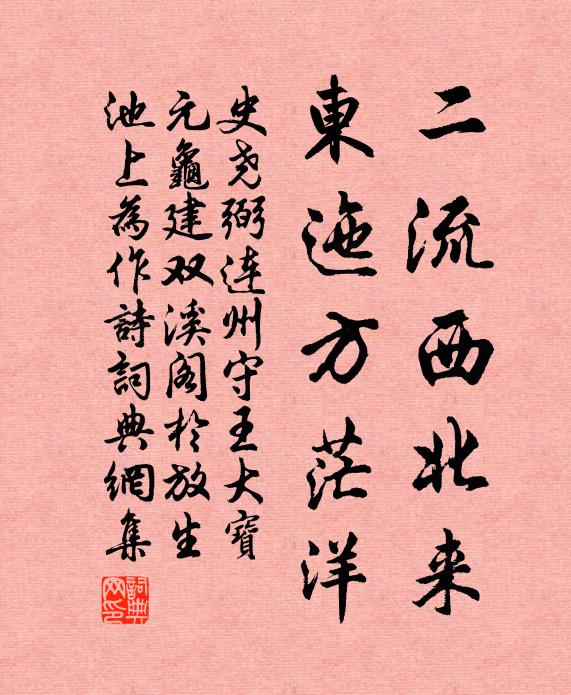 二流西北来
東迆方茫洋
史尧弼连州守王大寶
元龜建双溪阁於放生
池上為作詩詞典網集
詞典网印